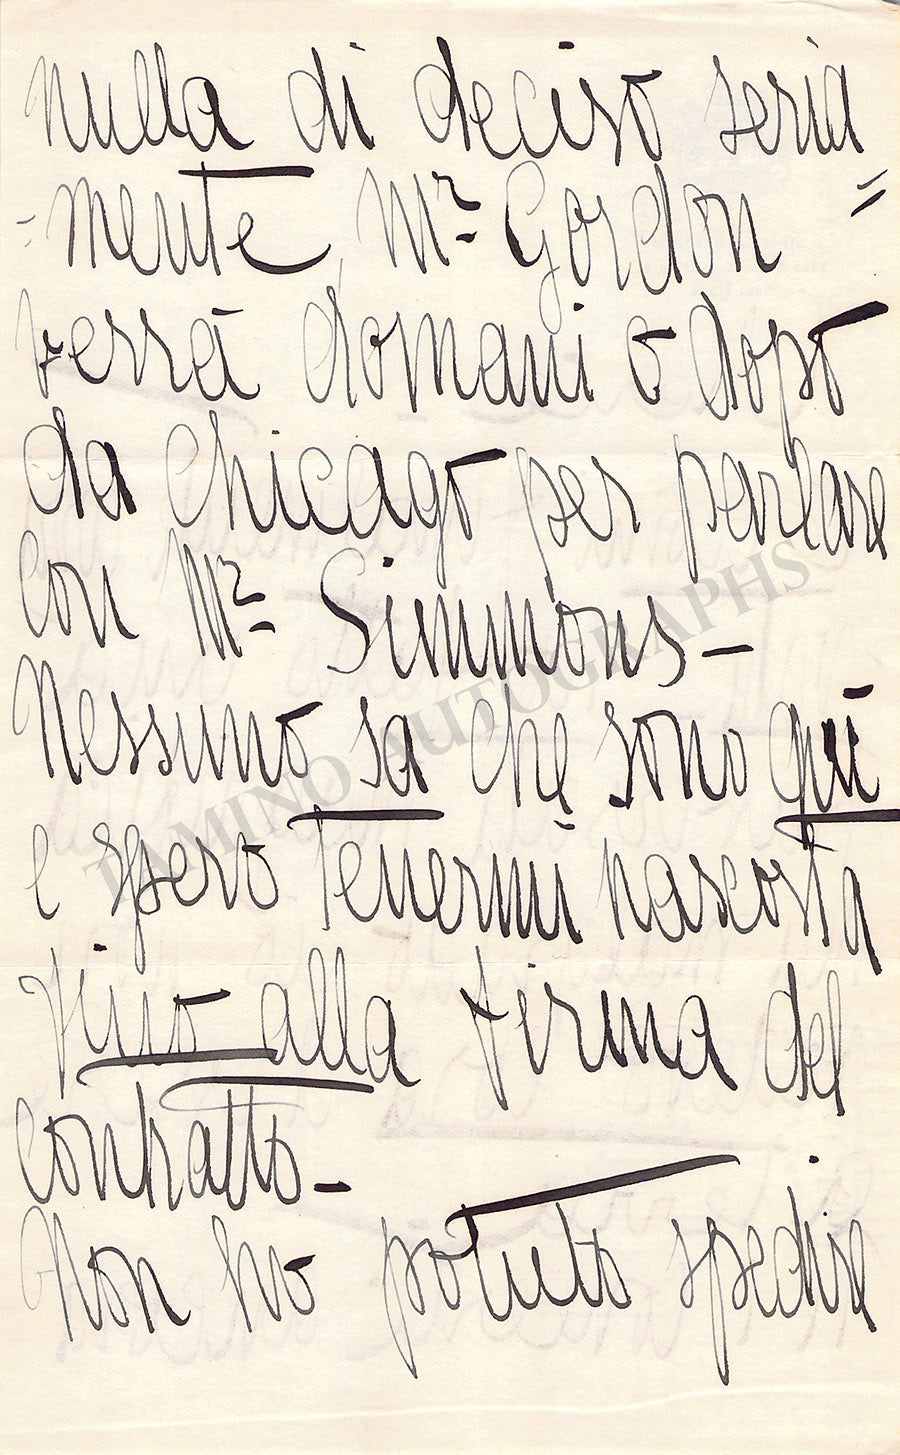 nulla di deciso seria
=mente, Mr. Gordon =
verrà domani o dopo
da Chicago per parlare
con Mr. Simmons –
Nessuno sa che sono quì
e spero tenermi nascosta
fino alla firma del
contratto –
Non ho potuto spedire
TAMINO AUTOGRAPHS